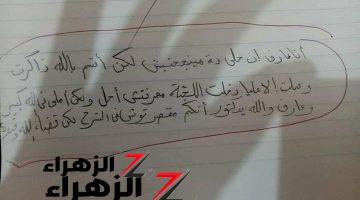 أنا عارف إن حلي ده مينجحنيش لكن أقسم بالله ذاكرت
وعملت الا عليا دخلت اللجنة معرفتش أحل ولكن أملي في الله كبير
وعارف والله يدكتور أنكم مقصرتوش في الشرح لكن قضاء الله
الزهراء
الزهراء